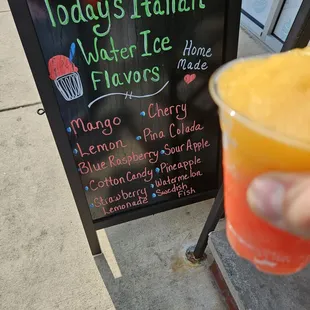 Today's Italian
Water Ice
Flavors
Home
Made
Mango
Cherry
Lemon
Pina Colada
Blue Raspberry
Sour Apple
Cotton Candy
Pineapple
Strawberry
Lemonade
Watermelon
Swedish
Fish